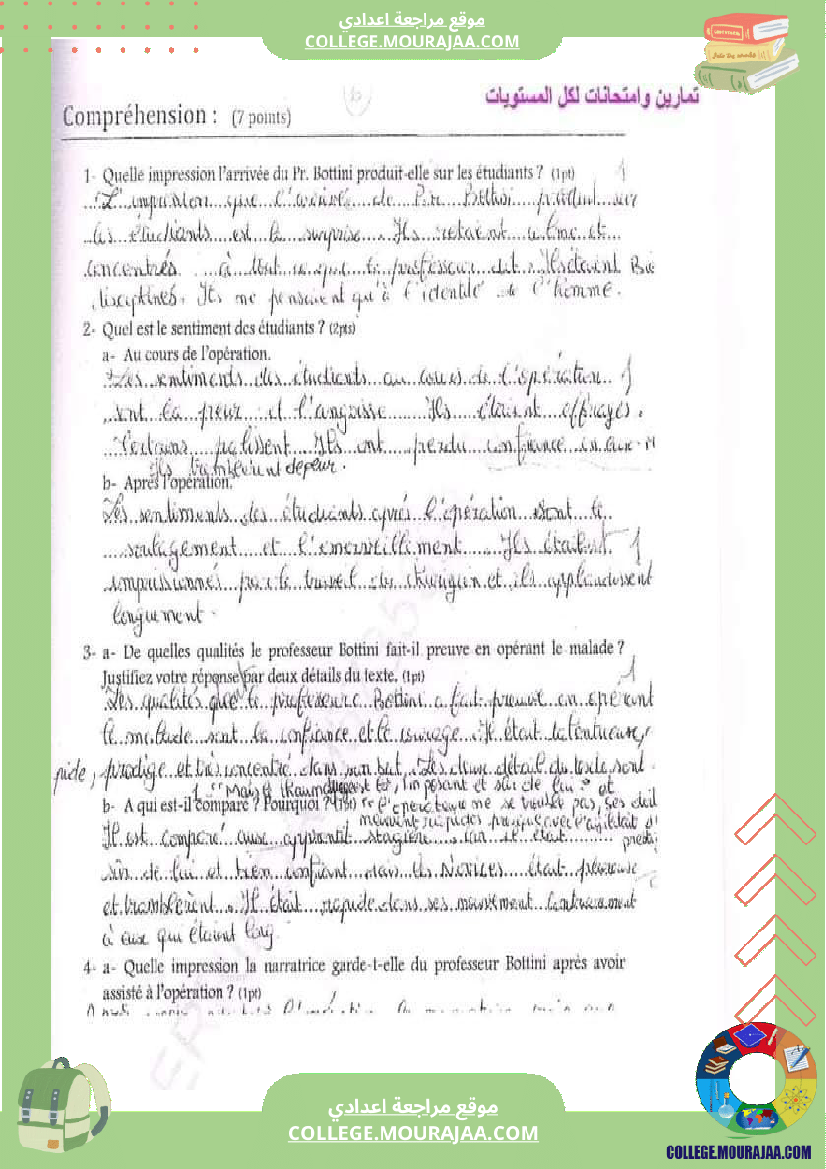 موقع مراجعة اعدادي
COLLEGE.MOURAJAA.COM
تمارين وامتحانات لكل المستويات
Compréhension : (7 points)
1- Quelle impression l'arrivée du Pr. Bottini produit-elle sur les étudiants ? (1pt) 1
L'impression que l'arrivée de Pr. Bottini produit sur
les étudiants est la surprise. Ils calme et
concentrés à tout ce que le professeur dit. Ils étaient
disciplinés. Ils ne pensaient qu'à l'identité de l'homme.
2- Quel est le sentiment des étudiants ? (2pts)
a- Au cours de l'opération.
Les sentiments des étudiants au cours de l'opération 1
sont la peur et l'angoisse Ils étaient effrayés.
Certains palissent. Ils ont perdu confiance en eux
Ils tremblèrent de peur.
b- Après l'opération.
Les sentiments des étudiants après l'opération sont le
soulagement et l'emerveillement. Ils étaient 1
impressionnés par le travail du chirurgien et ils applaudissent
longuement.
3- a- De quelles qualités le professeur Bottini fait-il preuve en opérant le malade ?
Justifiez votre réponse par deux détails du texte. (1pt) 1
Les qualités que le professeur Bottini a fait preuve en opérant
le malade sont la confiance et le courage. Il était talentueuse,
pide, prodige et très concentré dans son but. Les deux détail du texte sont
1 "Mais il imposant et sûr de lui" et
b- A qui est-il comparé ? Pourquoi ? (1pt) se pas, ses
rapides presque avec l'agilité d'
Il est comparé aux apprenti stagière car il était
sûr de lui et bien confiant mais les Novices était peureuse
et tremblèrent. Il était rapide dans ses mouvement contrairement
à eux qui étaient long
4- a- Quelle impression la narratrice garde-t-elle du professeur Bottini après avoir
assisté à l'opération ? (1pt) 1
موقع مراجعة اعدادي
COLLEGE.MOURAJAA.COM
COLLEGE.MOURAJAA.COM